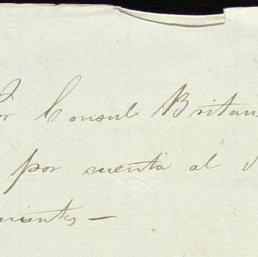 or Consul Britan
por cuenta al
mientos —